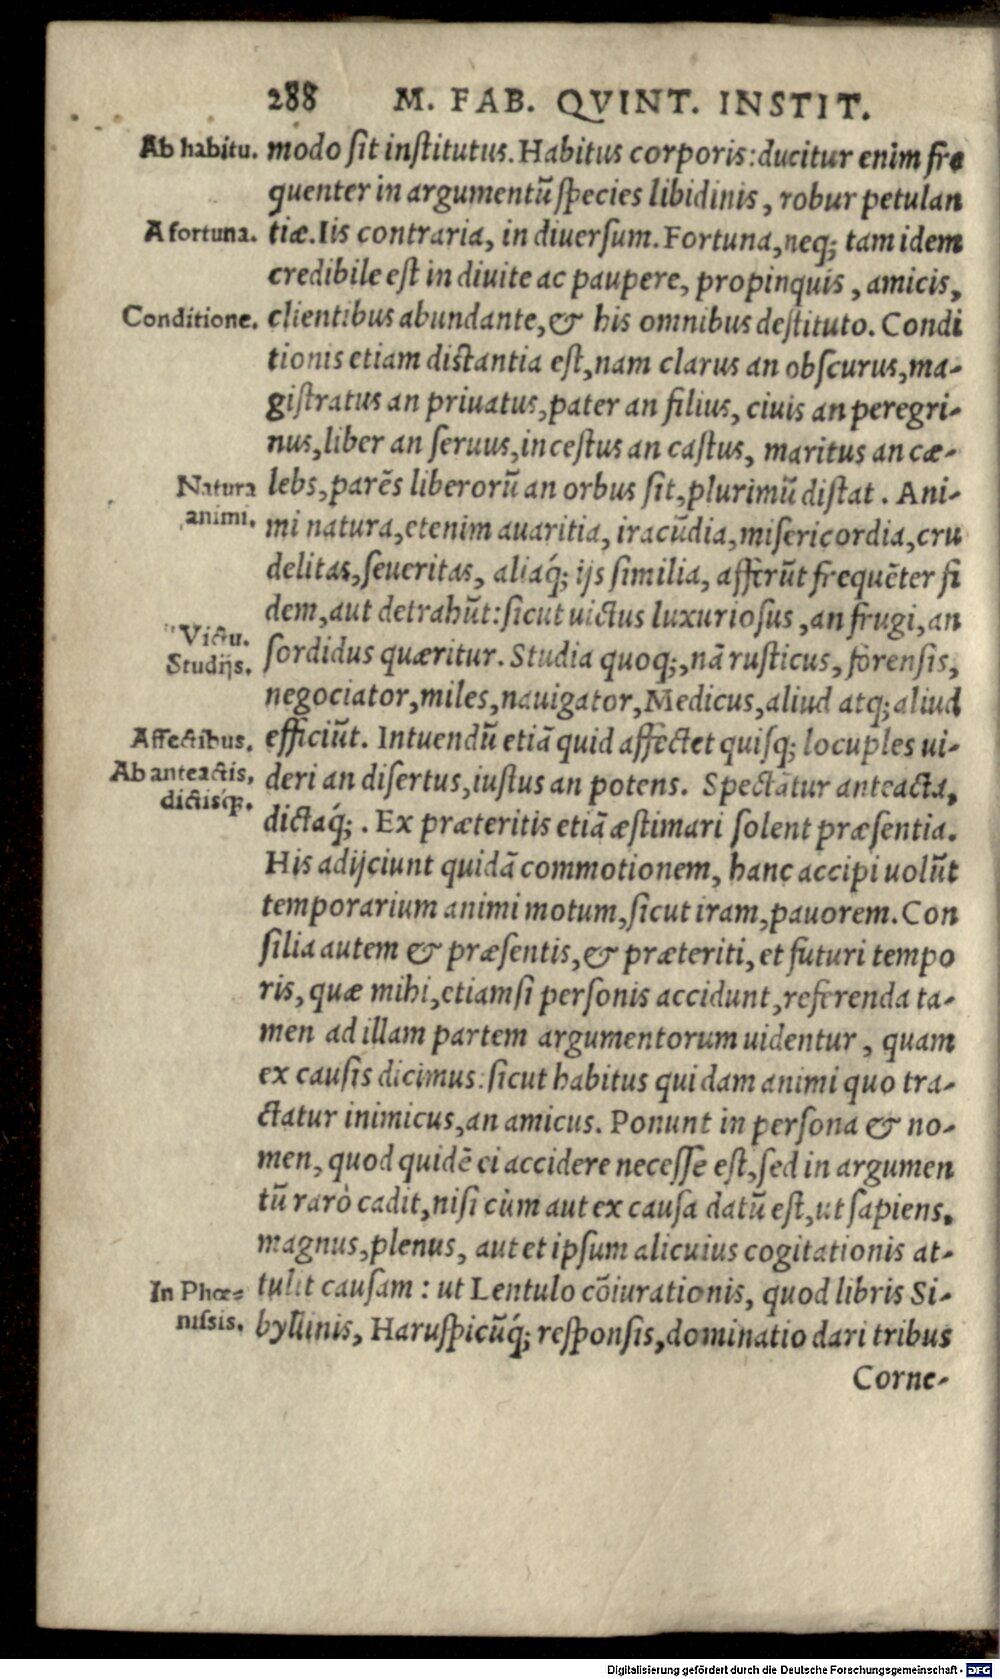 288 M. FAB. QVINT. INSTIT.
Ab habitu. modo ſit inſtitutus. Habitus corporis: ducitur enim fre
quenter in argumentũ ſpecies libidinis, robur petulan
A fortuna. tiæ. Iis contraria, in diuerſum. Fortuna, neq; tam idem
credibile eſt in diuite ac paupere, propinquis, amicis,
Conditione. clientibus abundante, & his omnibus deſtituto. Condi
tionis etiam diſtantia eſt, nam clarus an obſcurus, ma-
giſtratus an priuatus, pater an filius, ciuis an peregri-
nus, liber an ſeruus, inceſtus an caſtus, maritus an cæ-
Natura lebs, parẽs liberorũ an orbus ſit, plurimũ diſtat. Ani-
animi. mi natura, etenim auaritia, iracũdia, miſericordia, cru
delitas, ſeueritas, aliaq́; ijs ſimilia, afferũt frequẽter fi
dem, aut detrahũt: ſicut uictus luxurioſus, an frugi, an
Victu.
Studijs. ſordidus quæritur. Studia quoq;, nã ruſticus, forenſis,
negociator, miles, nauigator, Medicus, aliud atq; aliud
Affectibus. efficiũt. Intuendũ etiã quid affectet quiſq; locuples ui-
Ab anteactis, deri an diſertus, iuſtus an potens. Spectãtur anteacta,
dictisq́;. dictaq́;. Ex præteritis etiã æſtimari ſolent præſentia.
His adijciunt quidã commotionem, hanc accipi uolũt
temporarium animi motum, ſicut iram, pauorem. Con
ſilia autem & præſentis, & præteriti, et futuri tempo
ris, quæ mihi, etiamſi perſonis accidunt, referenda ta-
men ad illam partem argumentorum uidentur, quam
ex cauſis dicimus: ſicut habitus quidam animi quo tra-
ctatur inimicus, an amicus. Ponunt in perſona & no-
men, quod quidẽ ei accidere neceſſe eſt, ſed in argumen
tũ rarò cadit, niſi cùm aut ex cauſa datũ eſt, ut ſapiens,
magnus, plenus, aut et ipſum alicuius cogitationis at-
In Phœ= tulit cauſam: ut Lentulo cõiurationis, quod libris Si-
niſsis. byllinis, Haruſpicũq́; reſponſis, dominatio dari tribus
Corne-
Digitalisierung gefördert durch die Deutsche Forschungsgemeinschaft - DFG